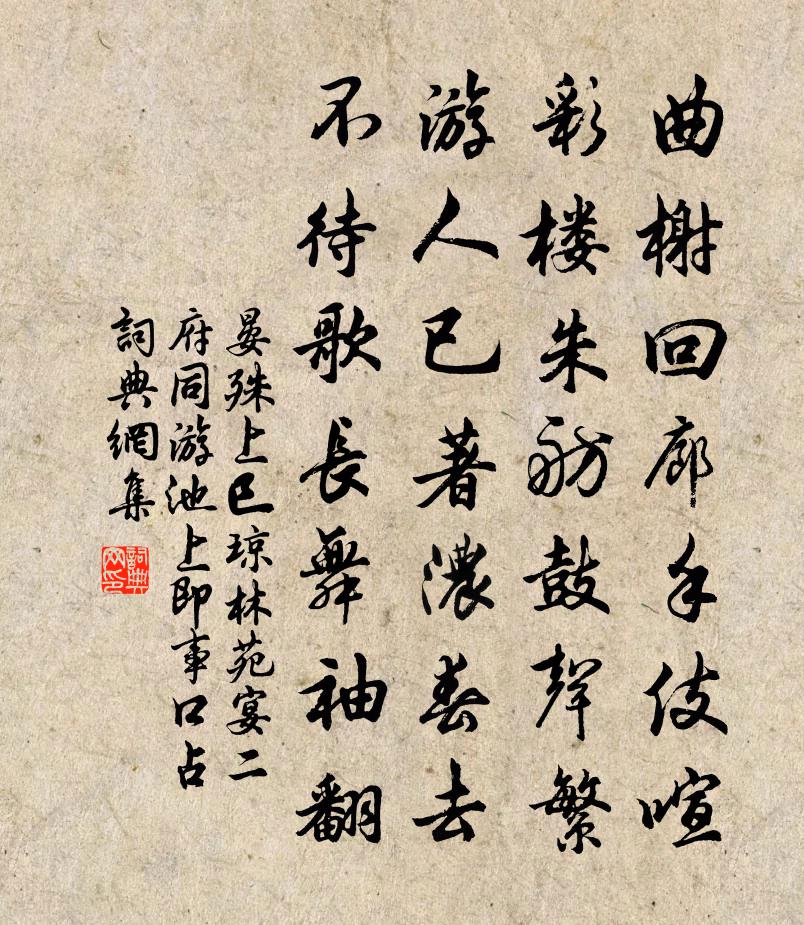 曲榭回廊手伎喧
彩楼朱舫鼓聲繁
游人已著濃春去
不待歌長舞袖翻
晏殊上巳琼林苑宴二
府同游池上即事口占
詞典網集
詞典网印